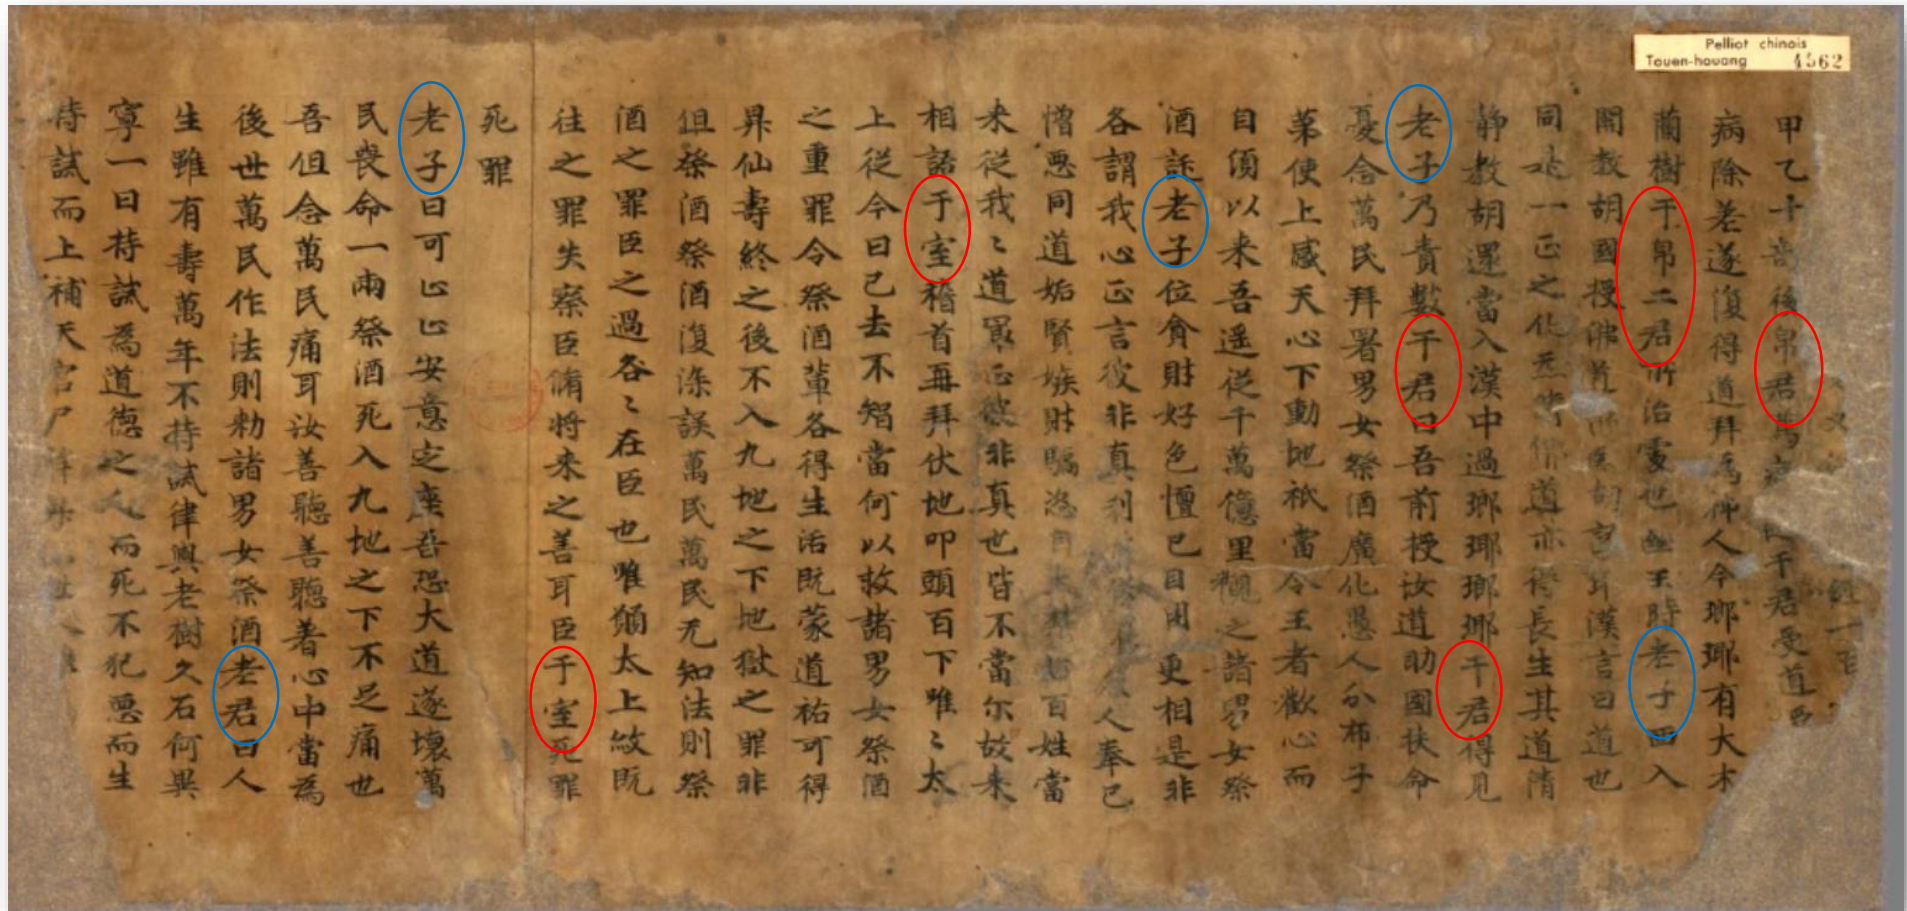 Pelliot chinois
Touen-houang 4562
甲乙十首後帛君篤病 干君受道
病除差遂復得道拜為仙人今瑯琊有大木
蘭樹干帛二君所治處也幽王時老子西入
開教胡國授佛 為胡言耳漢言曰道也
同是一正之化 佛道亦得長生其道清
靜教胡還當入漢中過瑯琊瑯琊干君得見
老子乃責數干君曰吾前授汝道助國扶命
憂念萬民拜署男女祭酒廣化愚人分布子
苐使上感天心下動地祇當令王者歡心而
自須以来吾遥從千萬億里觀之諸男女祭
酒託老子位貪財好色擅已自用更相是非
各謂我心正言彼非真利 人奉已
憎惡同道妬賢嫉財驕恣自大 百姓當
来從我〻道冣正彼非真也皆不當尔故来
相語于室稽首再拜伏地叩頭百下唯〻太
上從今日已去不知當何以救諸男女祭酒
之重罪令祭酒輩各得生活既蒙道祐可得
昇仙壽終之後不入九地之下地獄之罪非
但祭酒祭酒復深誤萬民萬民无知法則祭
酒之罪臣之過咎〻在臣也唯願太上赦既
往之罪失察臣脩将来之善耳臣于室死罪
死罪
老子曰可止止安意定座吾恐大道遂壞萬
民喪命一兩祭酒死入九地之下不足痛也
吾但念萬民痛耳汝善聽善聽著心中當為
後世萬民作法則勑諸男女祭酒老君曰人
生雖有壽萬年不持誡律與老樹久石何異
寧一日持誡為道德之人而死不犯惡而生
持誡而上補天官尸解